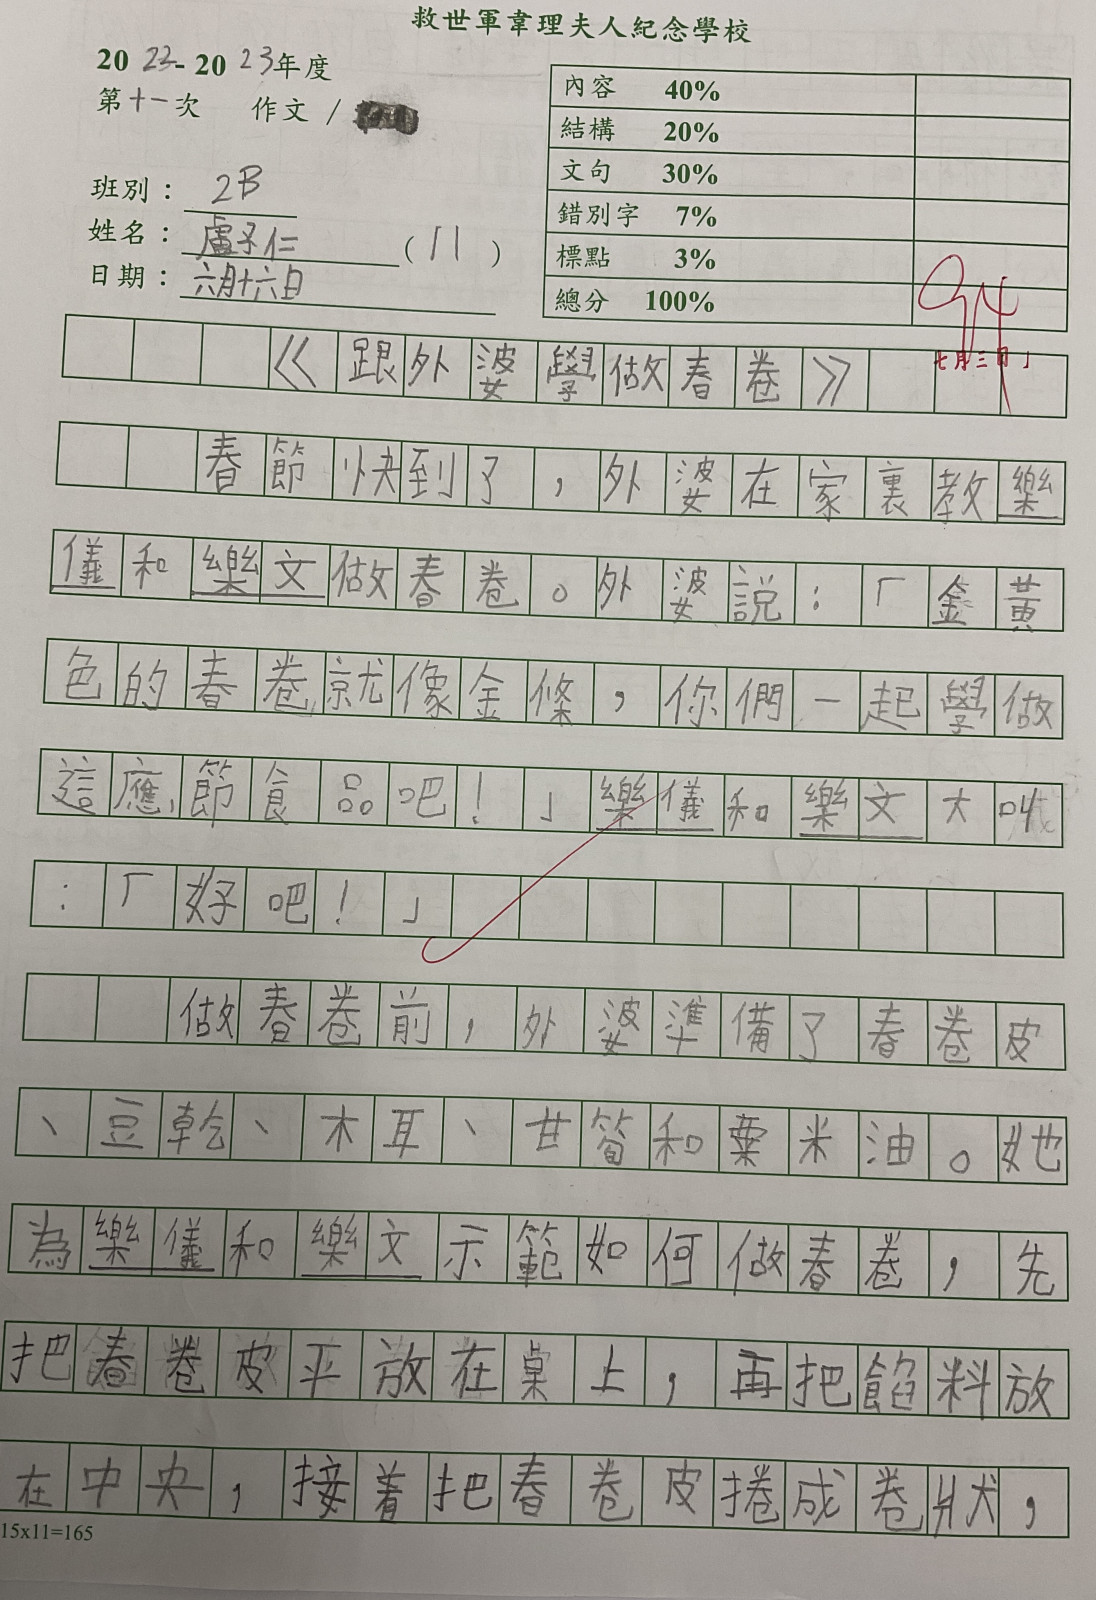 救世軍韋理夫人紀念學校
2022-2023年度
第十一次 作文 /
內容 40%
結構 20%
文句 30%
錯別字 7%
標點 3%
總分 100%
94
七月三日
班別：2B
姓名：盧子仁 (11)
日期：六月十六日
《跟外婆學做春卷》
春節快到了，外婆在家裏教樂
儀和樂文做春卷。外婆說：「金黃
色的春卷就像金條，你們一起學做
這應節食品吧！」樂儀和樂文大叫
：「好吧！」
做春卷前，外婆準備了春卷皮
、豆乾、木耳、甘筍和粟米油。她
為樂儀和樂文示範如何做春卷，先
把春卷皮平放在桌上，再把餡料放
在中央，接着把春卷皮捲成卷狀，
15x11=165